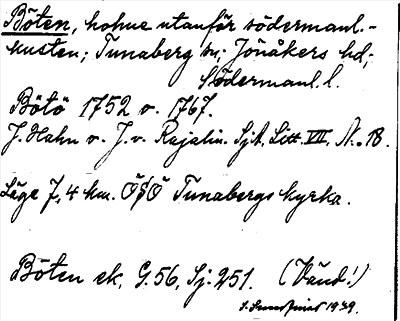 Böten, holme utanför södermanl.-
kusten; Tunaberg sn; Jönåkers hd;
Södermanl. l.
Bötö 1752 o. 1767.
J. Hahn o. J. v. Rajalin. Sjk. Litt. VIII, N. 18.
Läge 7,4 km. OSO Tunabergs kyrka.
Böten ek, G. 56, Sj: 251. (Vänd!)
1939.